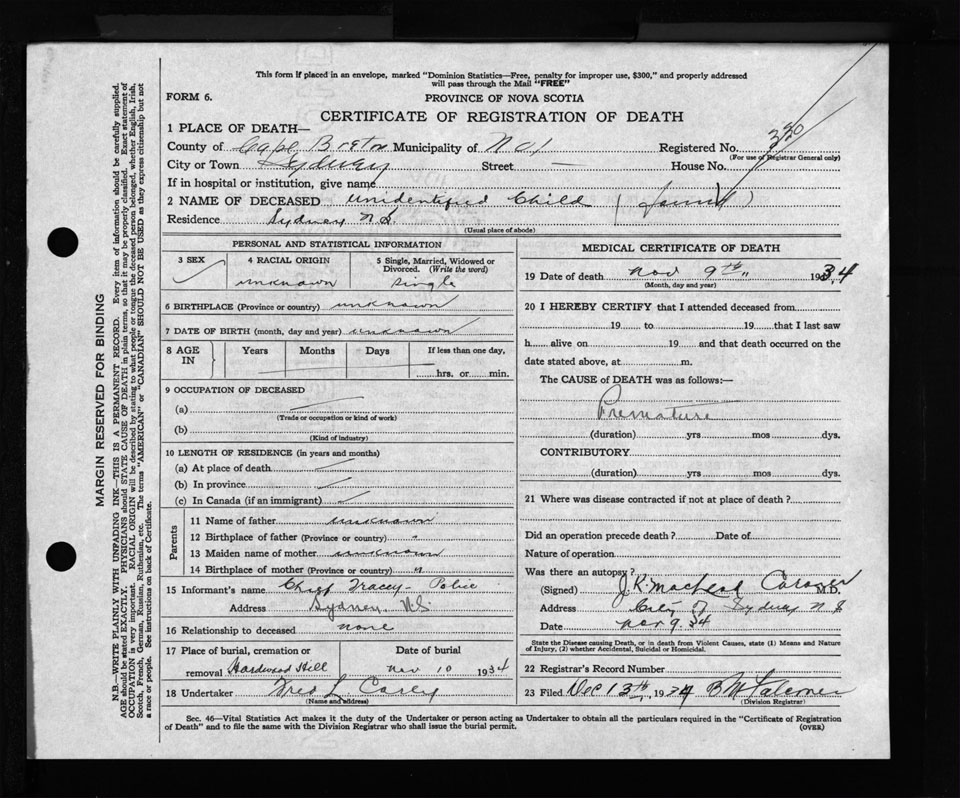 This form if placed in an envelope, marked "Dominion Statistics—Free, penalty for improper use, $300," and properly addressed
will pass through the Mail "FREE"
FORM 6.
PROVINCE OF NOVA SCOTIA
CERTIFICATE OF REGISTRATION OF DEATH
1 PLACE OF DEATH—
County of Cape Breton Municipality of No 1 Registered No. 320
(For use of Registrar General only)
City or Town Sydney Street — House No.
If in hospital or institution, give name
2 NAME OF DECEASED Unidentified Child (found)
Residence Sydney N.S.
(Usual place of abode)
PERSONAL AND STATISTICAL INFORMATION
3 SEX
4 RACIAL ORIGIN unknown
5 Single, Married, Widowed or
Divorced. (Write the word)
single
6 BIRTHPLACE (Province or country) unknown
7 DATE OF BIRTH (month, day and year) unknown
8 AGE IN Years Months Days If less than one day,
hrs. or min.
9 OCCUPATION OF DECEASED
(a)
(Trade or occupation or kind of work)
(b)
(Kind of industry)
10 LENGTH OF RESIDENCE (in years and months)
(a) At place of death
(b) In province
(c) In Canada (if an immigrant)
Parents
11 Name of father unknown
12 Birthplace of father (Province or country) "
13 Maiden name of mother unknown
14 Birthplace of mother (Province or country) "
15 Informant's name Chief Tracey - Police
Address Sydney, N.S.
16 Relationship to deceased none
17 Place of burial, cremation or
removal Hardwood Hill
Date of burial
Nov 10 1934
18 Undertaker Fred L. Curry
(Name and address)
MEDICAL CERTIFICATE OF DEATH
19 Date of death Nov 9th 1934
(Month, day and year)
20 I HEREBY CERTIFY that I attended deceased from
19 to 19 that I last saw
h alive on 19 and that death occurred on the
date stated above, at m.
The CAUSE of DEATH was as follows:—
Premature
(duration) yrs mos dys.
CONTRIBUTORY
(duration) yrs mos dys.
21 Where was disease contracted if not at place of death?
Did an operation precede death? Date of
Nature of operation
Was there an autopsy?
(Signed) J.K. MacLeod Coroner M.D.
Address City of Sydney N S
Date Nov 9 34
State the Disease causing Death, or in death from Violent Causes, state (1) Means and Nature
of Injury, (2) whether Accidental, Suicidal or Homicidal.
22 Registrar's Record Number
23 Filed Dec 13th, 1934 B M Falconer
(Division Registrar)
Sec. 46—Vital Statistics Act makes it the duty of the Undertaker or person acting as Undertaker to obtain all the particulars required in the "Certificate of Registration
of Death" and to file the same with the Division Registrar who shall issue the burial permit.
(OVER)
MARGIN RESERVED FOR BINDING
N.B.—WRITE PLAINLY WITH UNFADING INK—THIS IS A PERMANENT RECORD. Every item of information should be carefully supplied.
AGE should be stated EXACTLY. PHYSICIANS should STATE CAUSE OF DEATH in plain terms, so that it may be properly classified. Exact statement of
OCCUPATION is very important. RACIAL ORIGIN will be described by stating to what people or tongue the deceased person belonged, whether English, Irish,
Scotch, French, German, Russian, Ruthenian, etc. The terms "AMERICAN" or "CANADIAN" SHOULD NOT BE USED as they express citizenship but not
a race or people. See instructions on back of Certificate.